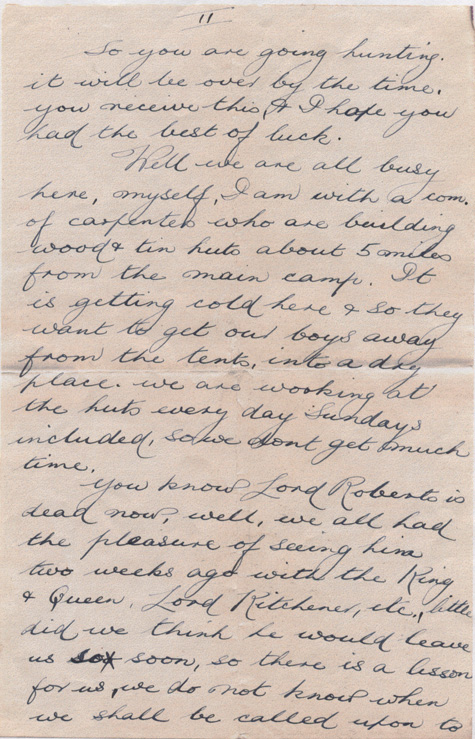 11
So you are going hunting.
it will be over by the time.
you receive this & I hope you
had the best of luck.
Well we are all busy
here, myself, I am with a com.
of carpenters who are building
wood & tin huts about 5 miles
from the main camp. It
is getting cold here & so they
want to get our boys away
from the tents, into a dry
place. we are working at
the huts every day Sundays
included, so we dont get much
time.
you know Lord Roberts is
dead now, well, we all had
the pleasure of seeing him
two weeks ago with the King
& Queen, Lord Kitchener, etc., little
did we think he would leave
us so soon, so there is a lesson
for us, we do not know when
we shall be called upon to